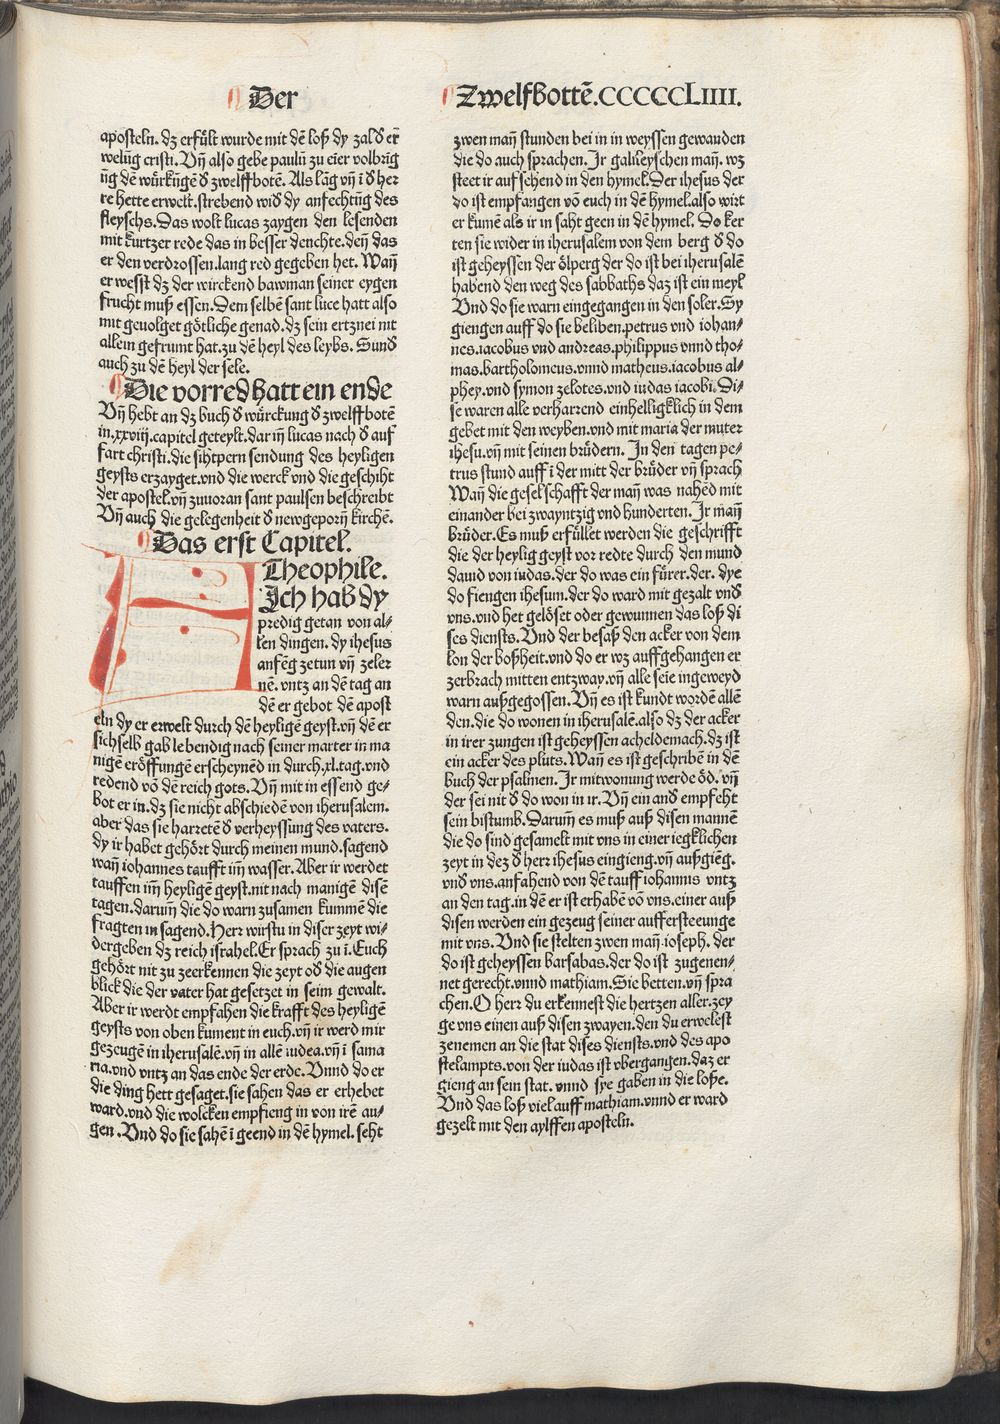 Der
Zwelfbottē.CCCCCLIIII.
aposteln. dz erfült wurde mit dē loß dy zal d̕ er
welūg cristi. Vn̄ also gebe paulū zu eīer volbrīg
ūg dē würkūgē d̕ zwelffbotē. Als lāg vn̄ ī d̕ her
re hette erwelt. strebend wid̕ dy anfechtūg des
fleyschs. Das wolt lucas zaygen den lesenden
mit kurtzer rede das in besser deuchte. den̄ das
er den verdrossen. lang red gegeben het. Wan̄
er wesst dz der wirckend bawman seiner eygen
frucht muß essen. Dem selbē sant luce hatt also
mit geuolget götliche genad. dz sein ertznei nit
allein gefrumt hat. zu dē heyl des leybs. Sund̕
auch zu dē heyl der sele.
Die vorred hatt ein ende
Vn̄ hebt an dz buch d̕ würckung d̕ zwelffbotē
in .xxviij. capitel geteylt. dar in̄ lucas nach d̕ auf
fart christi. die sihtpern sendung des heyligen
geysts erzayget. vnd die werck vnd die geschiht
der apostel. vn̄ zuuoran sant paulsen beschreibt
Vn̄ auch die gelegenheit d̕ newgeporn̄ kirchē.
Das erst Capitel.
Theophile.
Ich hab dy
predig getan von al⸗
len dingen. dy ihesus
anfēg zetun vn̄ zeler
nē. vntz an dē tag an
dē er gebot dē apost
eln dy er erwelt durch dē heyligē geyst. vn̄ dē er
sich selb gab lebendig nach seiner marter in ma
nigē eröffungē erscheynēd in durch .xl. tag. vnd
redend vō dē reich gots. Vn̄ mit in essend ge⸗
bot er in. dz sie nicht abschiedē von iherusalem.
aber das sie harretē d̕ verheyssūng des vaters.
dy ir habet gehört durch meinen mund. sagend
wan̄ iohannes taufft im̄ wasser. Aber ir werdet
tauffen im̄ heyligē geyst. nit nach manigē disē
tagen. darum̄ die do warn zusamen kummē die
fragten in sagend. Herr wirstu in diser zeyt wi⸗
dergeben dz reich israhel. Er sprach zu ī. Euch
gehört nit zu zeerkennen die zeyt od̕ die augen
blick die der vater hat gesetzet in seim gewalt.
Aber ir werdt empfahen die krafft des heyligē
geysts von oben kument in euch. vn̄ ir werd mir
gezeugē in iherusalē. vn̄ in allē iudea. vn̄ ī sama
ria. vnd vntz an das ende der erde. Vnnd do er
die ding hett gesaget. sie sahen das er erhebet
ward. vnd die wolcken empfieng in von irē au⸗
gen. Vnd do sie sahē ī geend in dē hymel. seht
zwen man̄ stunden bei in in weyssen gewanden
die do auch sprachen. Ir galileyschen man̄. wz
steet ir auf sehend in den hymel. Der ihesus der
do ist empfangen vō euch in dē hymel. also wirt
er kumē als ir in saht geen in dē hymel. Do ker
ten sie wider in iherusalem von dem berg d̕ do
ist geheyssen der ölperg der do ist bei iherusalē
habend den weg des sabbaths daz ist ein meyl
Vnd do sie warn eingegangen in den soler. Sy
giengen auff do sie beliben. petrus vnd iohan⸗
nes. iacobus vnd andreas. philippus vnnd tho⸗
mas. bartholomeus. vnnd matheus. iacobus al⸗
phey. vnd symon zelotes. vnd iudas iacobi. Di⸗
se waren alle verharrend einhelligklich in dem
gebet mit den weyben. vnd mit maria der muter
ihesu. vn̄ mit seinen brüdern. In den tagen pe⸗
trus stund auff ī der mitt der brüder vn̄ sprach
Wan̄ die geselschafft der man̄ was nahēd mit
einander bei zwayntzig vnd hunderten. Ir man̄
brüder. Es muß erfüllet werden die geschrifft
die der heylig geyst vor redte durch den mund
dauid von iudas. der do was ein fürer. der. dye
do fiengen ihesum. der do ward mit gezalt vnd̕
vns. vnd het gelöset oder gewunnen das loß di
ses diensts. Vnd der besaß den acker von dem
lon der boßheit. vnd do er wz auffgehangen er
zerbrach mitten entzway. vn̄ alle seīe ingeweyd
warn außgegossen. Vn̄ es ist kundt wordē allē
den. die do wonen in iherusalē. also dz der acker
in irer zungen ist geheyssen acheldemach. dz ist
ein acker des pluts. Wan̄ es ist geschribē in dē
buch der psalmen. Ir mitwonung werde öd. vn̄
der sei nit d̕ do won in ir. Vn̄ ein and̕ empfeht
sein bistumb. Darum̄ es muß auß disen mannē
die do sind gesamelt mit vns in einer iegklichen
zeyt in dez d̕ herr ihesus eingieng. vn̄ außgiēg.
vnd̕ vns. anfahend von dē tauff iohannis vntz
an den tag. in dē er ist erhabē vō vns. einer auß
disen werden ein gezeug seiner auffersteeunge
mit vns. Vnd sie stelten zwen man̄. ioseph. der
do ist geheyssen barsabas. der do ist zugenen⸗
net gerecht. vnnd mathiam. Sie betten. vn̄ spra
chen. O herr du erkennest die hertzen aller. zey
ge vns einen auß disen zwayen. den du erwelest
zenemen an die stat dises diensts. vnd des apo
stelampts. von der iudas ist vbergangen. daz er
gieng an sein stat. vnnd sye gaben in die loße.
Vnd das loß viel auff mathiam. vnnd er ward
gezelt mit den aylffen aposteln.